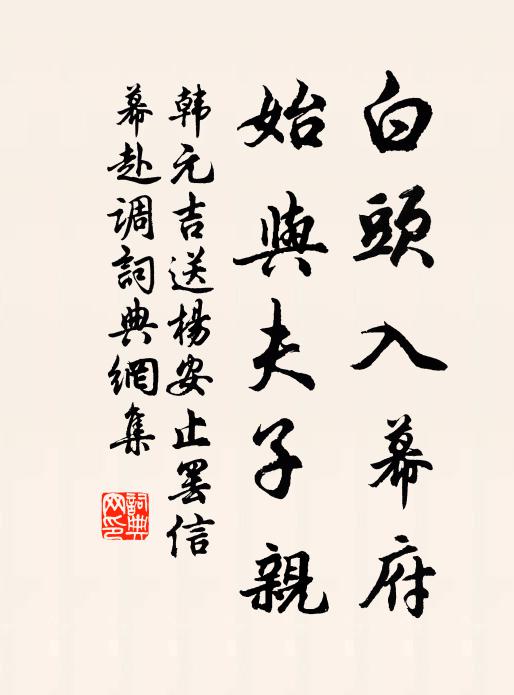 白頭入幕府
始與夫子親
韩元吉送楊安止罢信
幕赴调詞典網集
詞典
网印